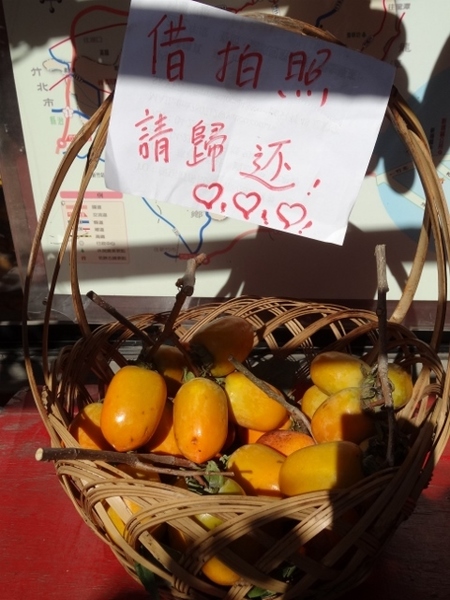 借拍照
請歸还!
竹北市